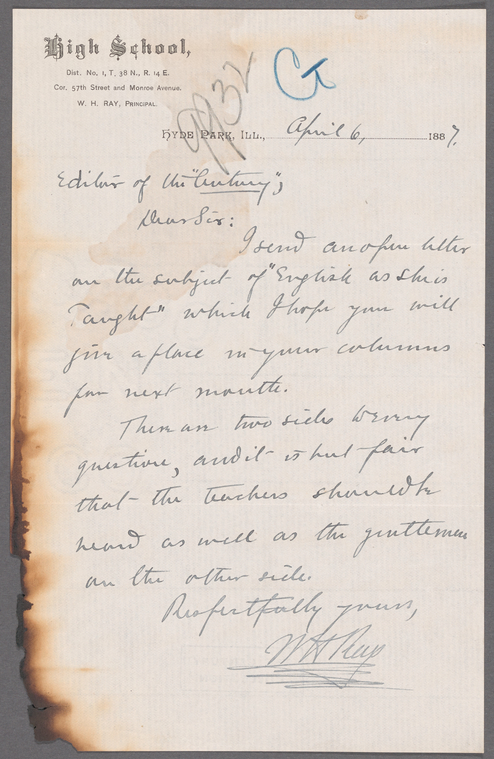 High School,
Dist. No. 1, T. 38 N., R. 14 E.
Cor. 57th Street and Monroe Avenue.
W. H. RAY, PRINCIPAL.
9932
HYDE PARK, ILL., April 6, 1887.
Editor of the "Century",
Dear Sir:
I send an open letter
on the subject of "English as She is
Taught" which I hope you will
give a place in your columns
for next month.
There are two sides to every
question, and it is but fair
that the teachers should be
heard as well as the gentlemen
on the other side.
Respectfully yours,
W H Ray